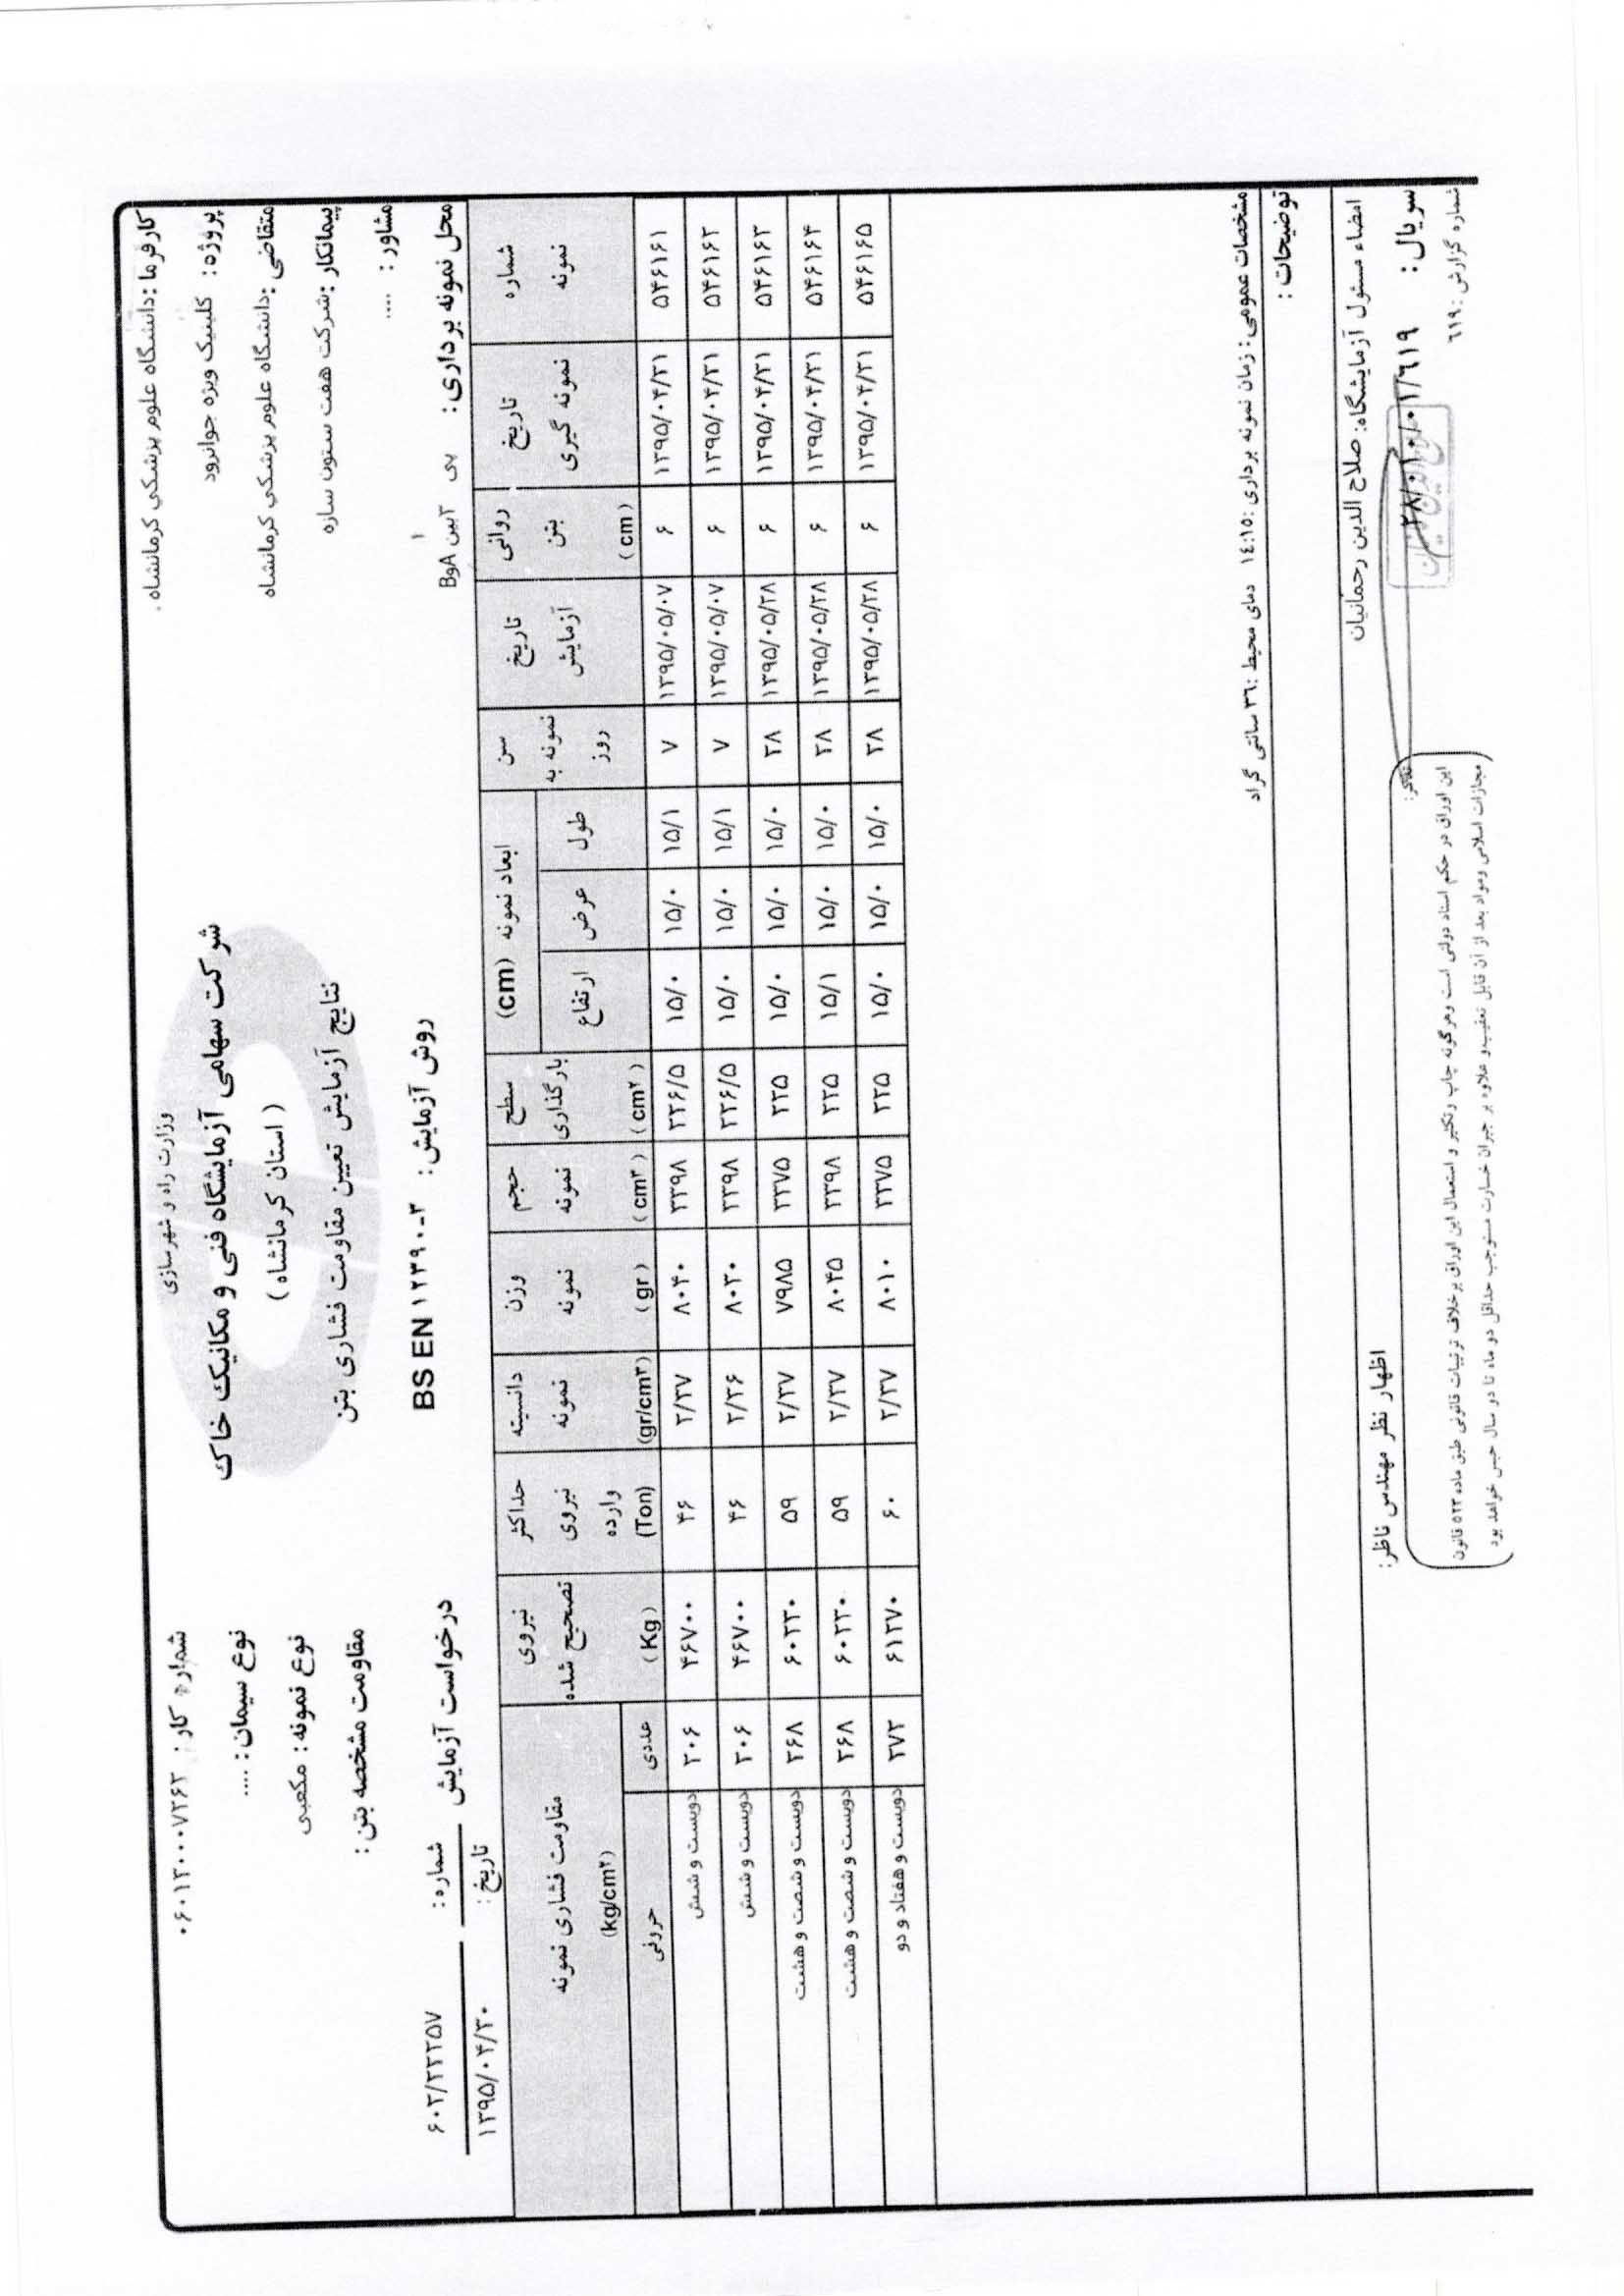 وزارت راه و شهرسازی
شرکت سهامی آزمایشگاه فنی و مکانیک خاک
( استان کرمانشاه )
نتایج آزمایش تعیین مقاومت فشاری بتن
روش آزمایش : BS EN ۱۲۳۹۰-۳
کارفرما : دانشگاه علوم پزشکی کرمانشاه .
پروژه : کلینیک ویژه جوانرود
متقاضی : دانشگاه علوم پزشکی کرمانشاه
پیمانکار : شرکت هفت ستون سازه
مشاور : ....
محل نمونه برداری : پی
شماره کار : ۰۶۰۱۳۰۰۰۷۲۶۲
نوع سیمان : ....
نوع نمونه : مکعبی
مقاومت مشخصه بتن :
درخواست آزمایش
شماره: ۶۰۲/۲۲۲۵۷
تاریخ : ۱۳۹۵/۰۴/۳۰
شماره نمونه | تاریخ نمونه گیری | روانی بتن (cm) | تاریخ آزمایش | سن نمونه به روز | ابعاد نمونه (cm) طول عرض ارتفاع | سطح بارگذاری (cm۲) | حجم نمونه (cm۳) | وزن نمونه (gr) | دانسیته نمونه (gr/cm۳) | حداکثر نیروی وارده (Ton) | نیروی تصحیح شده (Kg) | مقاومت فشاری نمونه (kg/cm۲) عددی حروفی
۵۴۶۱۶۱ ۱۳۹۵/۰۴/۳۱ ۶ ۱۳۹۵/۰۵/۰۷ ۷ ۱۵/۱ ۱۵/۰ ۱۵/۰ ۲۲۶/۵ ۳۳۹۸ ۸۰۴۰ ۲/۳۷ ۴۶ ۴۶۷۰۰ ۲۰۶ دویست و شش
۵۴۶۱۶۲ ۱۳۹۵/۰۴/۳۱ ۶ ۱۳۹۵/۰۵/۰۷ ۷ ۱۵/۱ ۱۵/۰ ۱۵/۰ ۲۲۶/۵ ۳۳۹۸ ۸۰۳۰ ۲/۳۶ ۴۶ ۴۶۷۰۰ ۲۰۶ دویست و شش
۵۴۶۱۶۳ ۱۳۹۵/۰۴/۳۱ ۶ ۱۳۹۵/۰۵/۲۸ ۲۸ ۱۵/۰ ۱۵/۰ ۱۵/۰ ۲۲۵ ۳۳۷۵ ۷۹۸۵ ۲/۳۷ ۵۹ ۶۰۲۳۰ ۲۶۸ دویست و شصت و هشت
۵۴۶۱۶۴ ۱۳۹۵/۰۴/۳۱ ۶ ۱۳۹۵/۰۵/۲۸ ۲۸ ۱۵/۰ ۱۵/۰ ۱۵/۱ ۲۲۵ ۳۳۹۸ ۸۰۴۵ ۲/۳۷ ۵۹ ۶۰۲۳۰ ۲۶۸ دویست و شصت و هشت
۵۴۶۱۶۵ ۱۳۹۵/۰۴/۳۱ ۶ ۱۳۹۵/۰۵/۲۸ ۲۸ ۱۵/۰ ۱۵/۰ ۱۵/۰ ۲۲۵ ۳۳۷۵ ۸۰۱۰ ۲/۳۷ ۶۰ ۶۱۲۷۰ ۲۷۲ دویست و هفتاد و دو
مشخصات عمومی : زمان نمونه برداری : ۱٤:۱٥ دمای محیط : ۳٦ سانتی گراد
توضیحات :
امضاء مسئول آزمایشگاه: صلاح الدین رحمانیان
اظهار نظر مهندس ناظر:
سریال :
شماره گزارش : ٦۱۹
تذکر:
این اوراق در حکم اسناد دولتی است و هر گونه چاپ و تکثیر و استعمال این اوراق بر خلاف ترتیبات قانونی طبق ماده ۵۲۳ قانون
مجازات اسلامی و مواد بعد از آن قابل تعقیب و علاوه بر جبران خسارت مستوجب حداقل دو ماه تا دو سال حبس خواهد بود